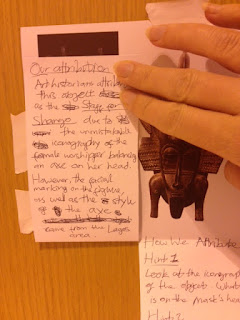 Our attribution
Art historians attribute
this object
as the Staff for
Shango due to
the unmistakable
iconography of the
female worshipper balancing
an axe on her head.
However, the facial
marking on the figure,
as well as the style
of the axe
came from the Lagos
area.
How We Attribute
Hint 1
Look at the iconography
of the object. What
is on the mask's head
Hint 2